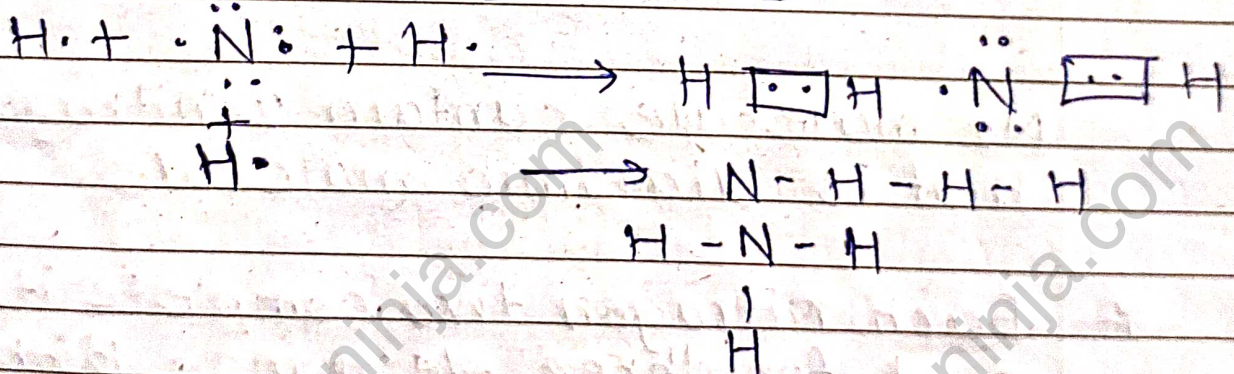 H· + ·N̈: + H· ⟶ H [··] H ·N̈ [··] H
+
H·
⟶ N - H - H - H
H - N - H
|
H
ninja.com
ninja.com